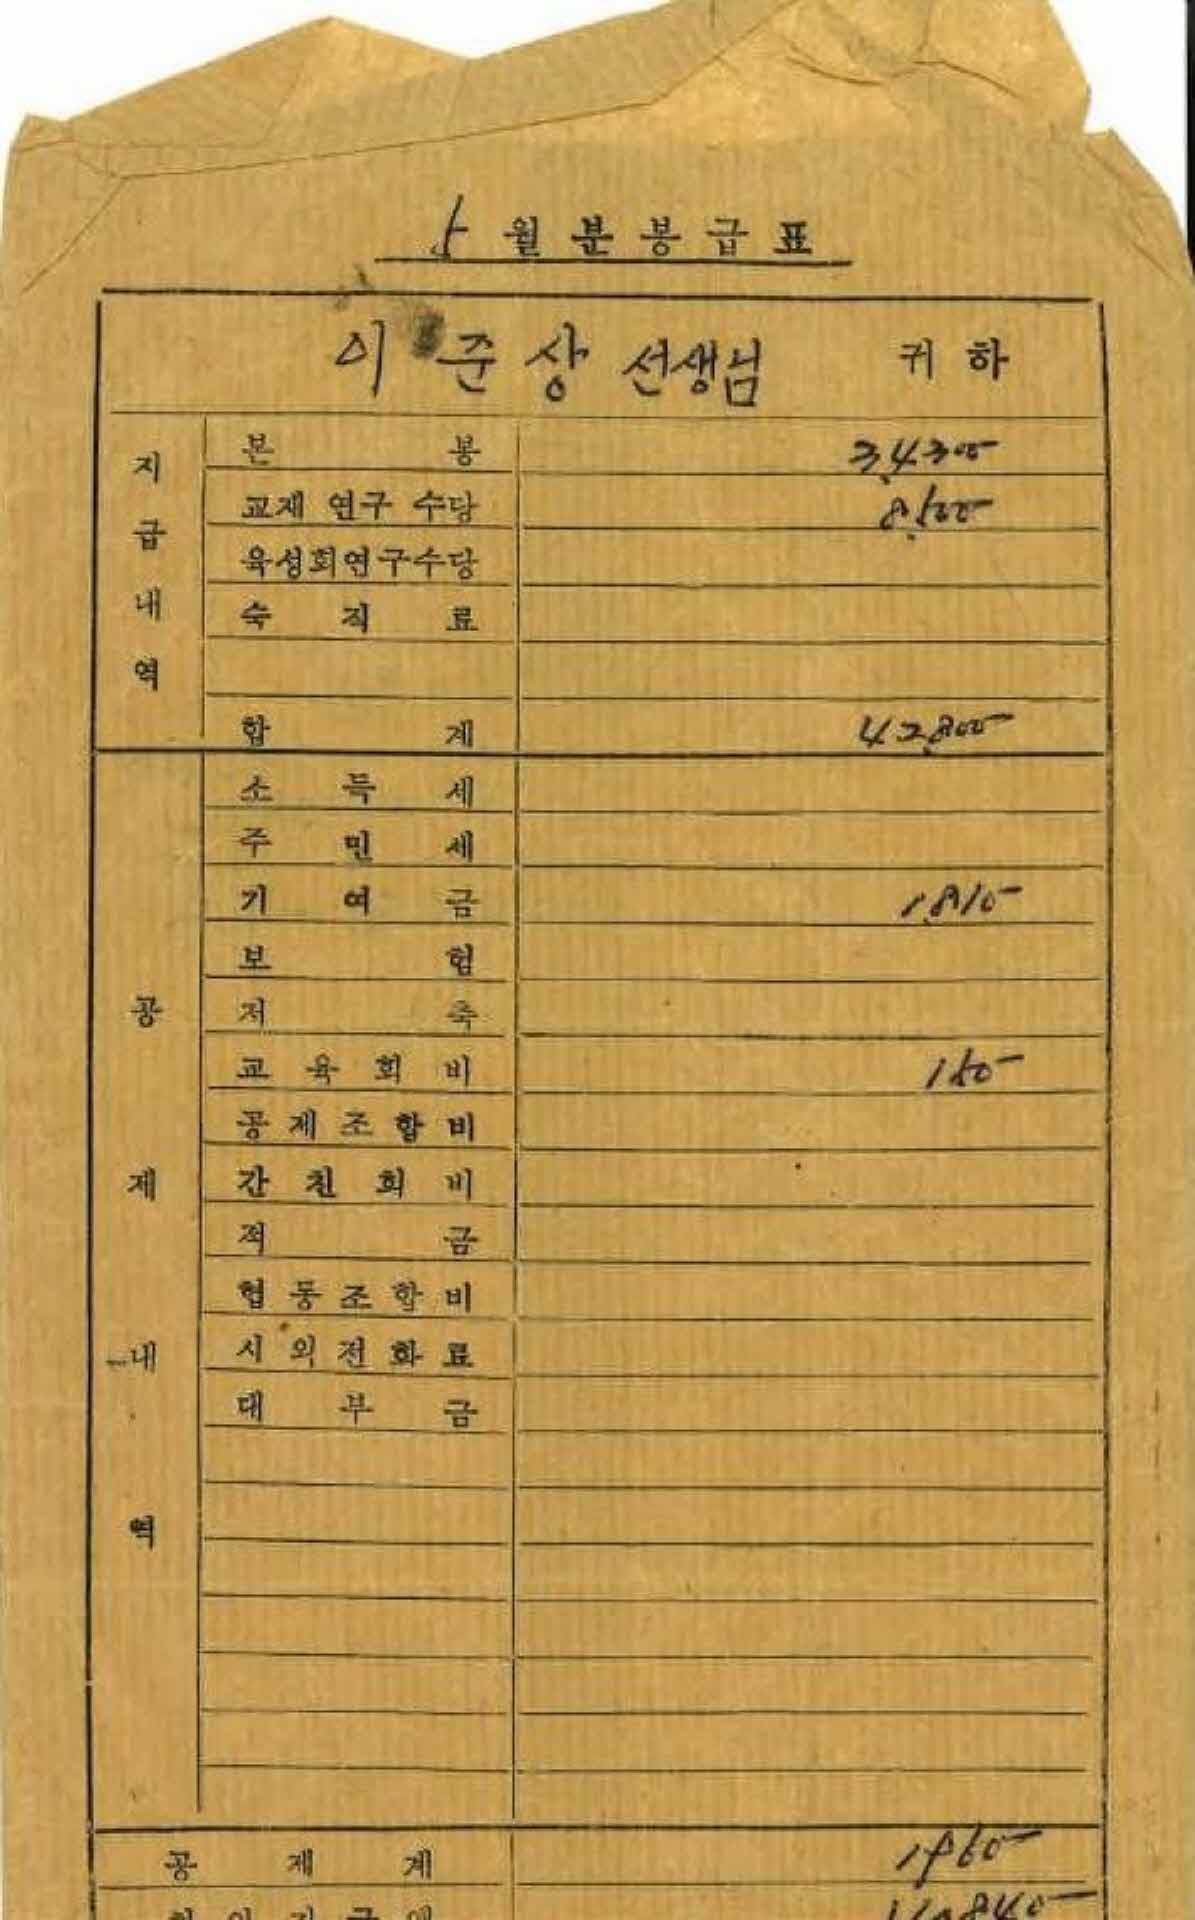 5 월 분 봉 급 표
이 준 상 선생님 귀 하
지 급 내 역
본 봉 34,300
교재 연구 수당 8,500
육성회연구수당
숙 직 료
합 계 42,800
공 제 내 역
소 득 세
주 민 세
기 여 금 1,810
보 험
저 축
교 육 회 비 150
공 제 조 합 비
간 친 회 비
적 금
협 동 조 합 비
시 외 전 화 료
대 부 금
공 제 계 1960